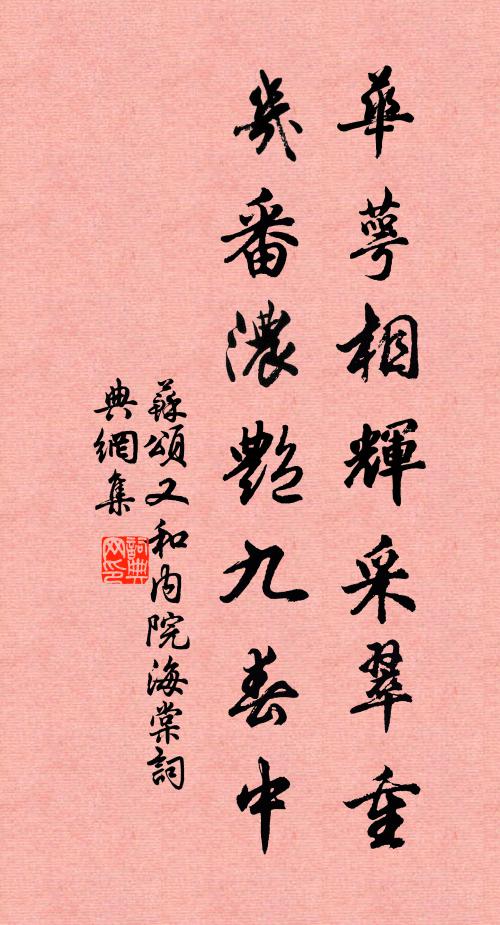 華萼相輝采翠重
幾番濃艷九春中
蘇頌又和內院海棠詞
典網集
詞典
网印